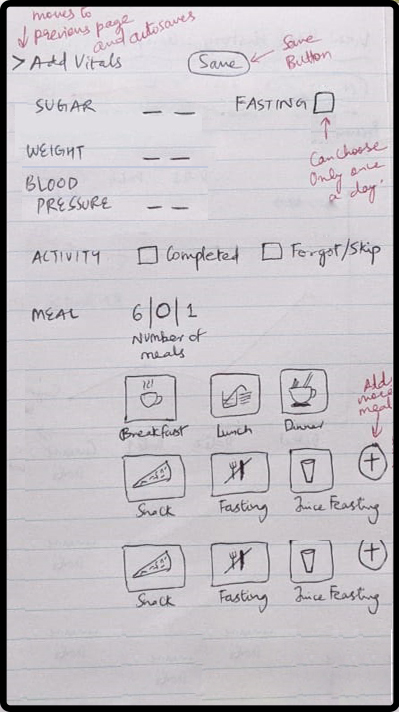 moves to
previous page
and autosaves
> Add Vitals
Save
Save
Button
SUGAR — —
FASTING
WEIGHT — —
Can choose
Only once
a day.
BLOOD
PRESSURE — —
ACTIVITY Completed Forgot/Skip
MEAL 6|0|1
Number of
meals
Add
more
meal
Breakfast Lunch Dinner
+
Snack Fasting Juice Feasting
+
Snack Fasting Juice Feasting